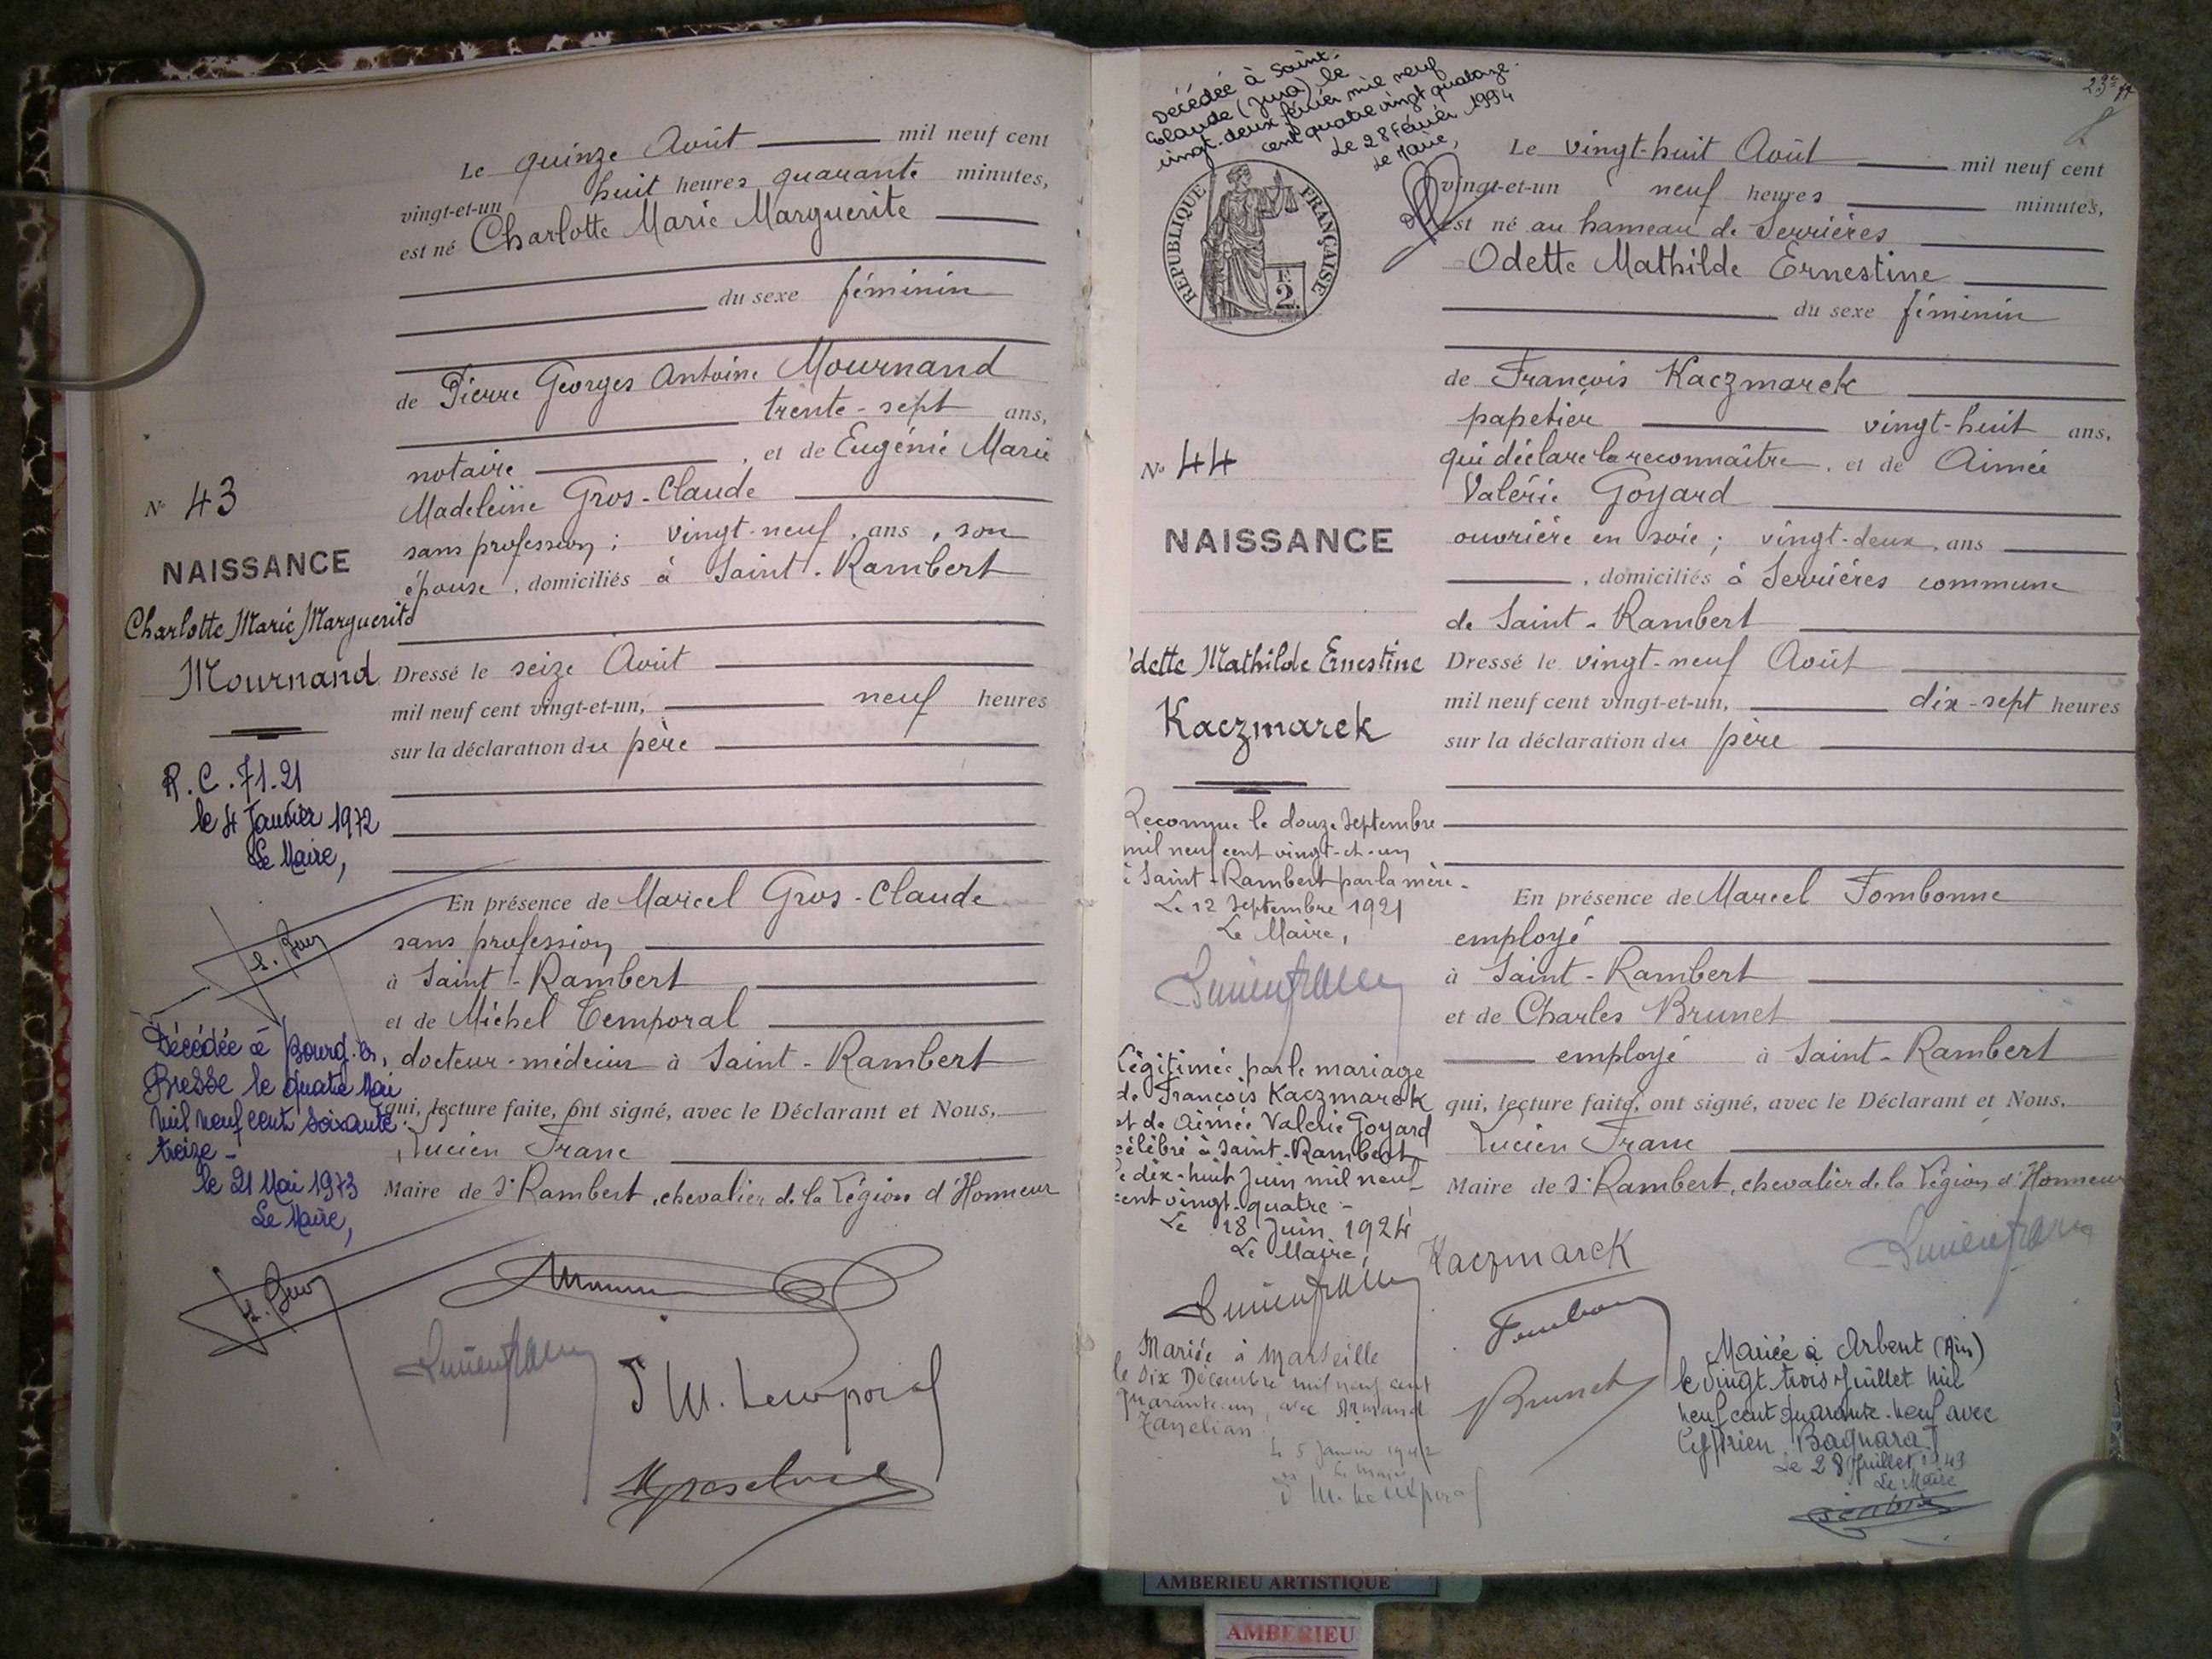 Le quinze Août mil neuf cent
vingt-et-un huit heures quarante minutes,
est né Charlotte Marie Marguerite
du sexe féminin
de Pierre Georges Antoine Mournand
trente-sept ans,
notaire, et de Eugénie Marie
Madeleine Gros-Claude
sans profession; vingt-neuf, ans, son
épouse, domiciliés à Saint-Rambert
Nº 43
NAISSANCE
Charlotte Marie Marguerite
Mournand
Dressé le seize Août
mil neuf cent vingt-et-un, neuf heures
sur la déclaration du père
R.C. 71.21
le 4 Janvier 1972
Le Maire,
En présence de Marcel Gros-Claude
sans profession
à Saint-Rambert
et de Michel Temporal
docteur-médecin à Saint-Rambert
qui, lecture faite, ont signé, avec le Déclarant et Nous,
Lucien Franc
Maire de St Rambert, chevalier de la Légion d'Honneur
Décédée à Bourg-en-
Bresse le quatre Mai
mil neuf cent soixante
treize -
le 21 Mai 1973
Le Maire,
M. Temporal
23e
Décédée à Saint-
Claude (Jura) le
vingt-deux février mil neuf
cent quatre vingt quatorze.
Le 28 Février 1994
Le Maire,
REPUBLIQUE FRANÇAISE
F.
2
Le vingt-huit Août mil neuf cent
vingt-et-un neuf heures minutes,
est né au hameau de Serrières
Odette Mathilde Ernestine
du sexe féminin
de François Kaczmarek
papetier vingt-huit ans,
qui déclare la reconnaître, et de Aimée
Valérie Goyard
ouvrière en soie; vingt-deux, ans
, domiciliés à Serrières commune
de Saint-Rambert
Nº 44
NAISSANCE
dette Mathilde Ernestine
Kaczmarek
Dressé le vingt-neuf Août
mil neuf cent vingt-et-un, dix-sept heures
sur la déclaration du père
Reconnue le douze Septembre
mil neuf cent vingt-et-un
à Saint-Rambert par la mère.
Le 12 Septembre 1921
Le Maire,
En présence de Marcel Tombonne
employé
à Saint-Rambert
et de Charles Brunet
employé à Saint-Rambert
qui, lecture faite, ont signé, avec le Déclarant et Nous,
Lucien Franc
Maire de St Rambert, chevalier de la Légion d'Honneur
Légitimée par le mariage
de François Kaczmarek
et de Aimée Valérie Goyard
célébré à Saint-Rambert
le dix-huit Juin mil neuf
cent vingt-quatre -
Le 18 Juin 1924
Le Maire,
Kaczmarek
Brunet
Mariée à Marseille
le six Décembre mil neuf cent
quarante un, avec Armand
Le 5 Janvier 1942
Le Maire
Mariée à Arbent (Ain)
le vingt trois Juillet mil
neuf cent quarante-neuf avec
Bagnara
Le 28 Juillet 1949
Le Maire
AMBERIEU ARTISTIQUE
AMBERIEU